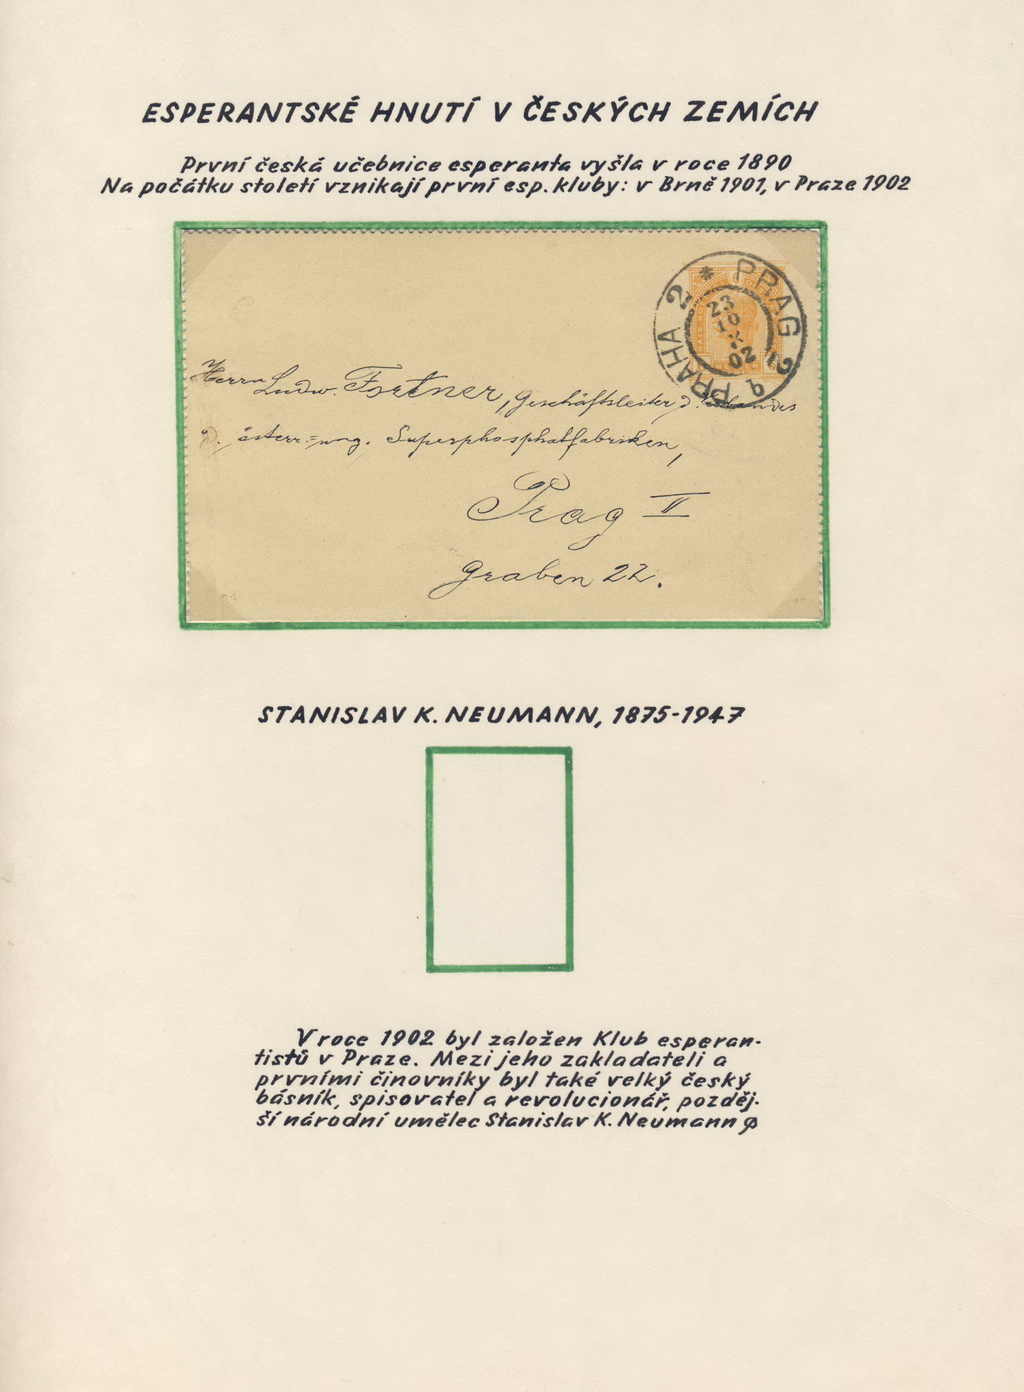 ESPERANTSKÉ HNUTÍ V ČESKÝCH ZEMÍCH
První česká učebnice esperanta vyšla v roce 1890
Na počátku století vznikají první esp. kluby: v Brně 1901, v Praze 1902
PRAHA 2 * PRAG 2 b
23
10
X
02
Herrn Ludw. Fortner, Geschäftsleiter d.
d. österr.=ung. Superphosphatfabriken,
Prag II
Graben 22.
STANISLAV K. NEUMANN, 1875-1947
V roce 1902 byl založen Klub esperan-
tistů v Praze. Mezi jeho zakladateli a
prvními činovníky byl také velký český
básník, spisovatel a revolucionář, pozděj-
ší národní umělec Stanislav K. Neumann